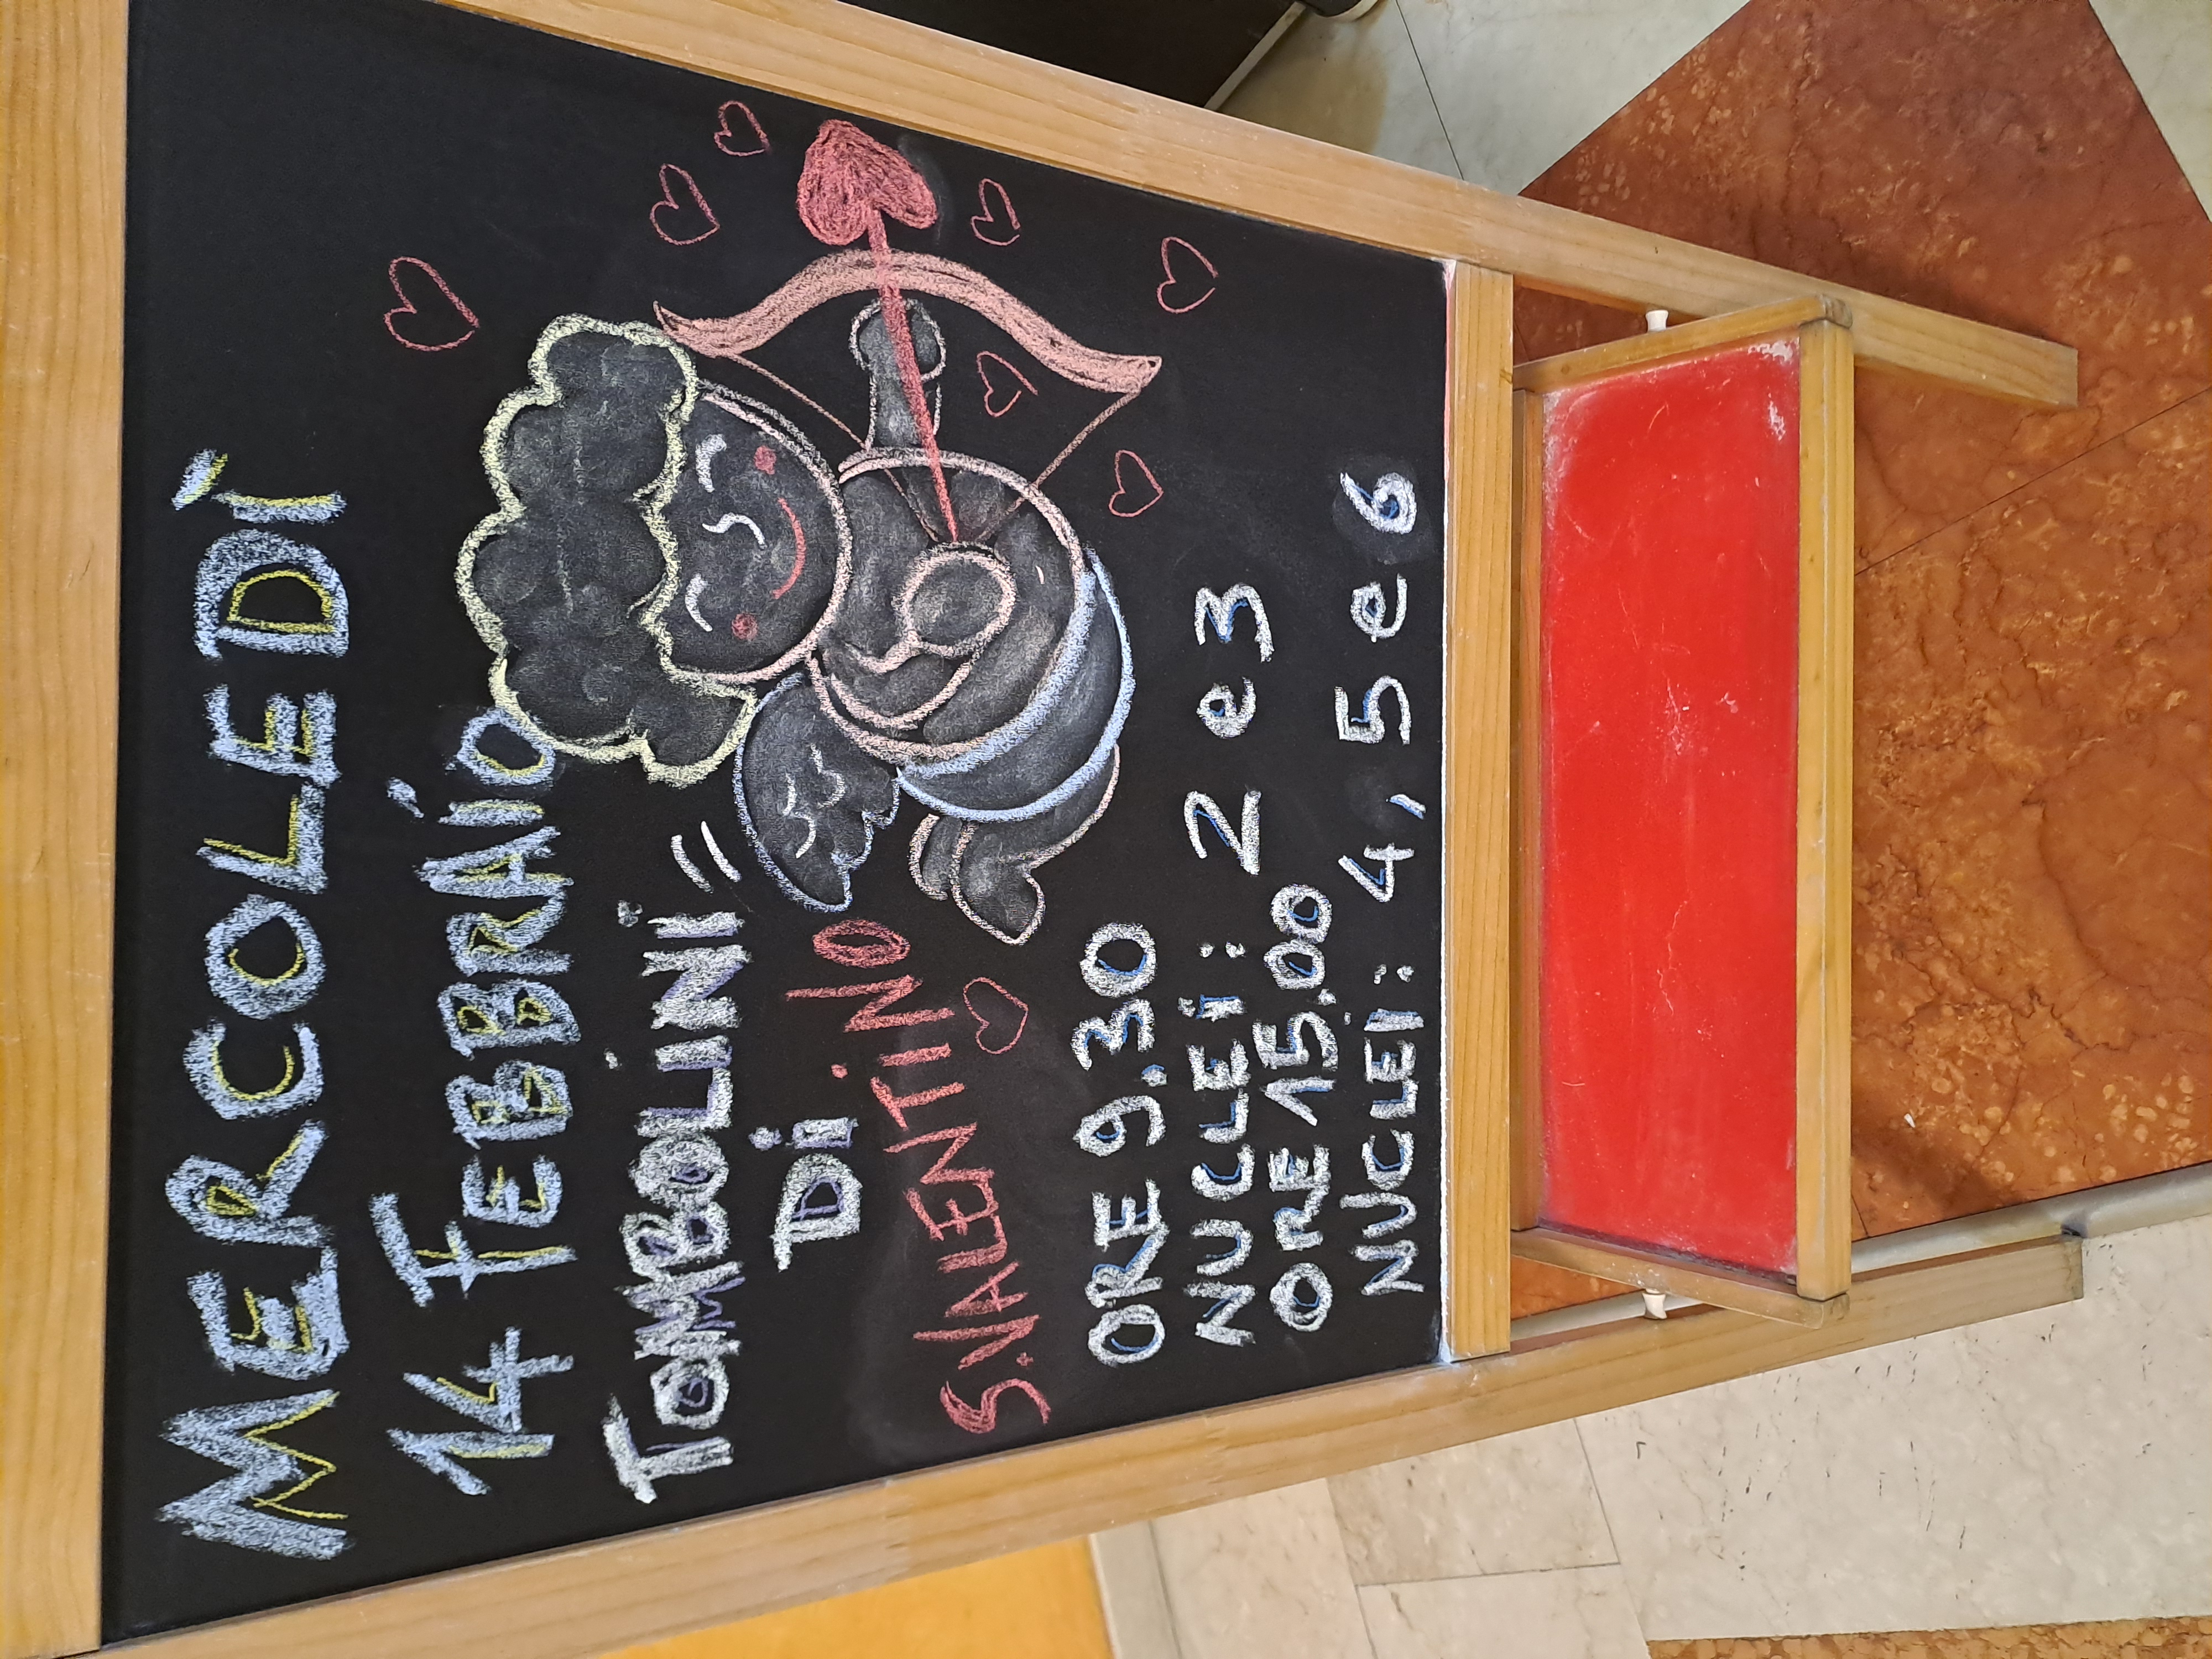 MERCOLEDÌ
14 FEBBRAIO
TOMBOLINI"
DI
S.VALENTINO
ORE 9.30
NUCLEI: 2 e 3
ORE 15.00
NUCLEI: 4, 5 e 6